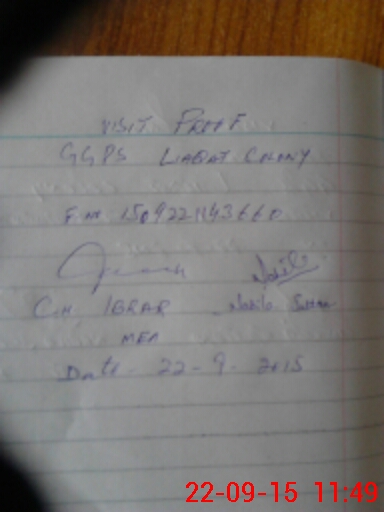 VISIT PROOF
GGPS LIAQAT COLONY
F. No 1509221143660
CH IBRAR Nabila
MEA
Date - 22 - 9 - 2015
22-09-15 11:49